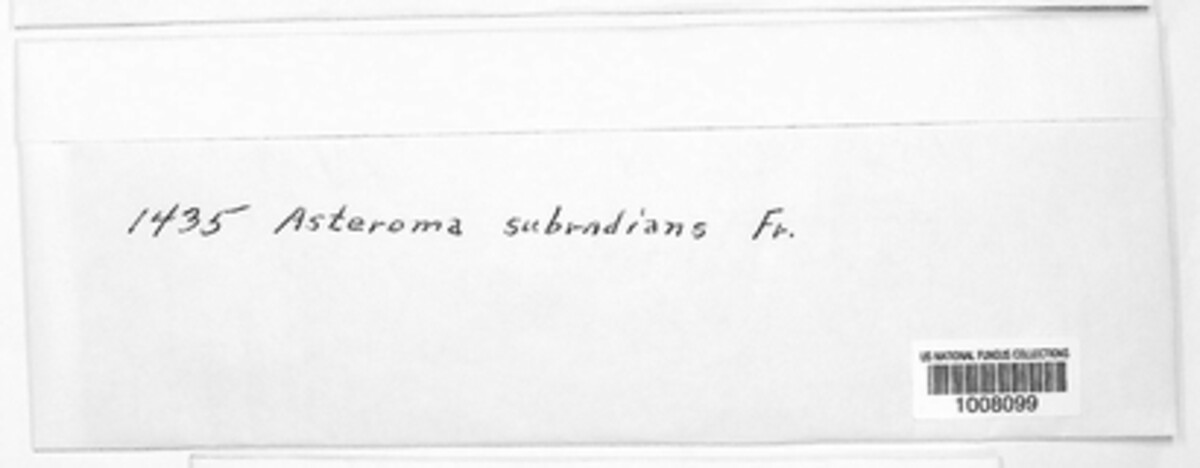 1435 Asteroma subradians Fr.
US NATIONAL FUNGUS COLLECTIONS
1008099